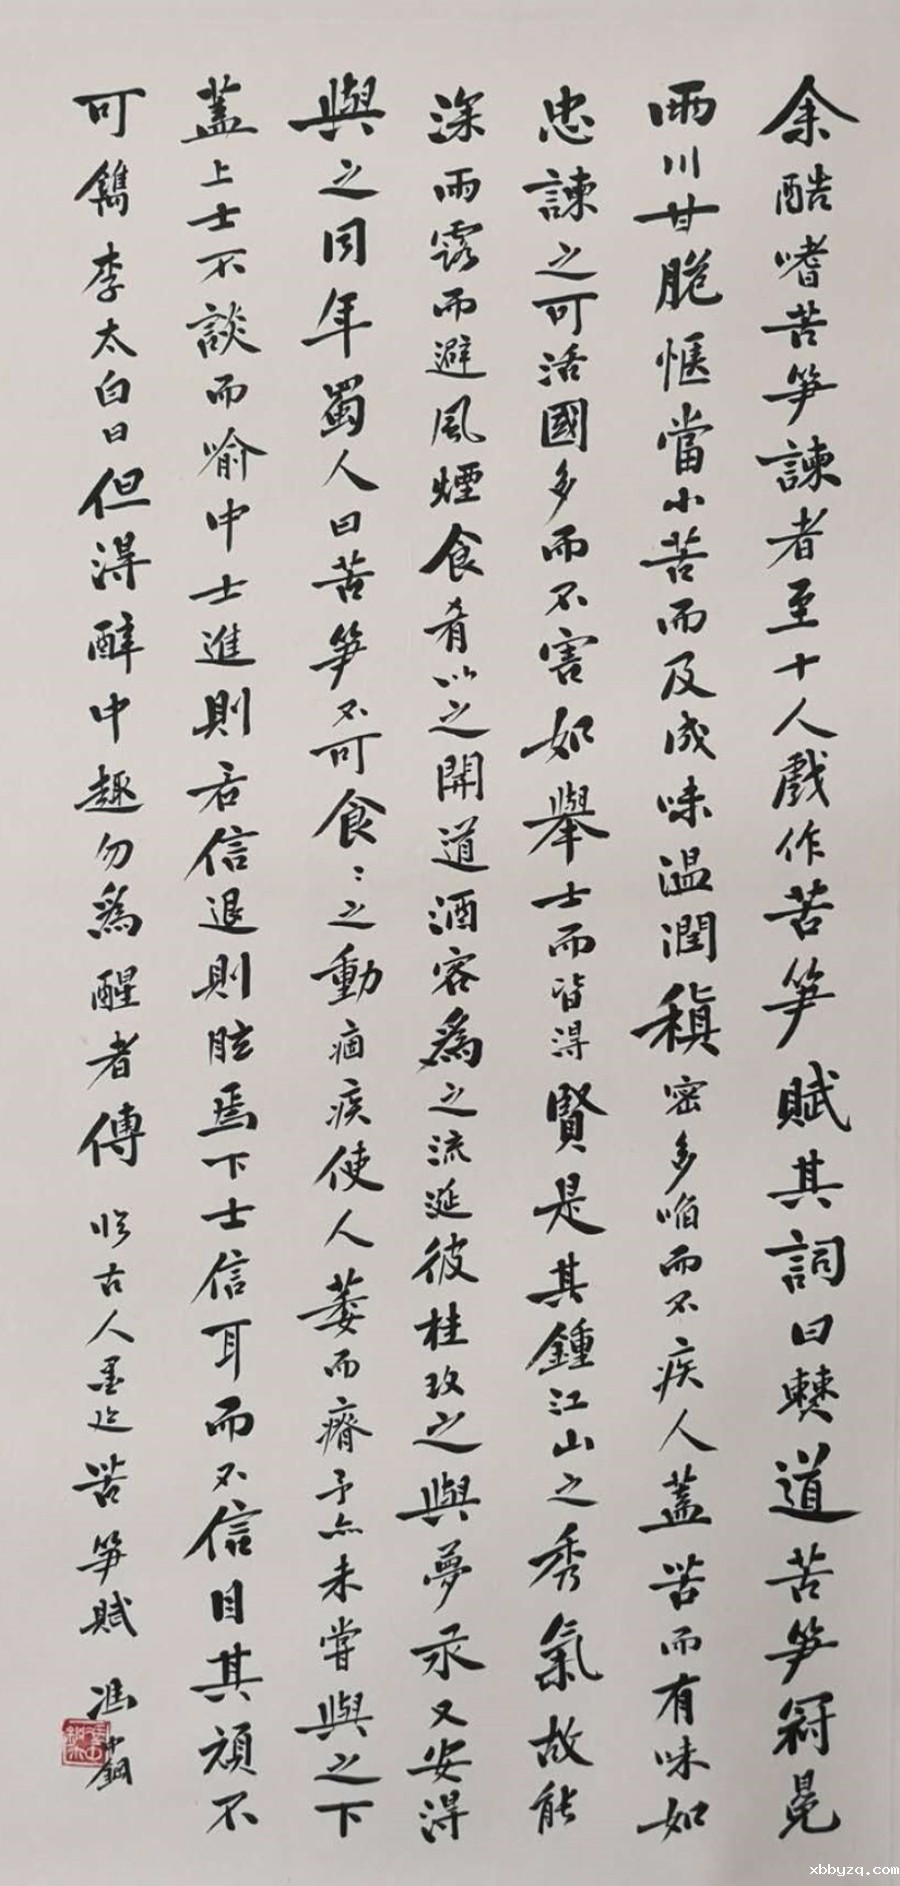 余酷嗜苦笋諫者至十人戲作苦笋賦其詞曰僰道苦笋冠冕
兩川甘脆愜當小苦而及成味温潤稹密多啗而不疾人蓋苦而有味如
忠諫之可活國多而不害如舉士而皆得賢是其鍾江山之秀氣故能
深雨露而避風煙食肴以之開道酒客為之流涎彼桂玫之與夢汞又安得
與之同年蜀人曰苦笋不可食〻之動痼疾使人萎而瘠予亦未嘗與之下
蓋上士不談而喻中士進則若信退則眩焉下士信耳而不信目其頑不
可鐫李太白曰但得醉中趣勿為醒者傳 臨古人墨迹苦笋賦 馮中鋼
xbbyzq.com